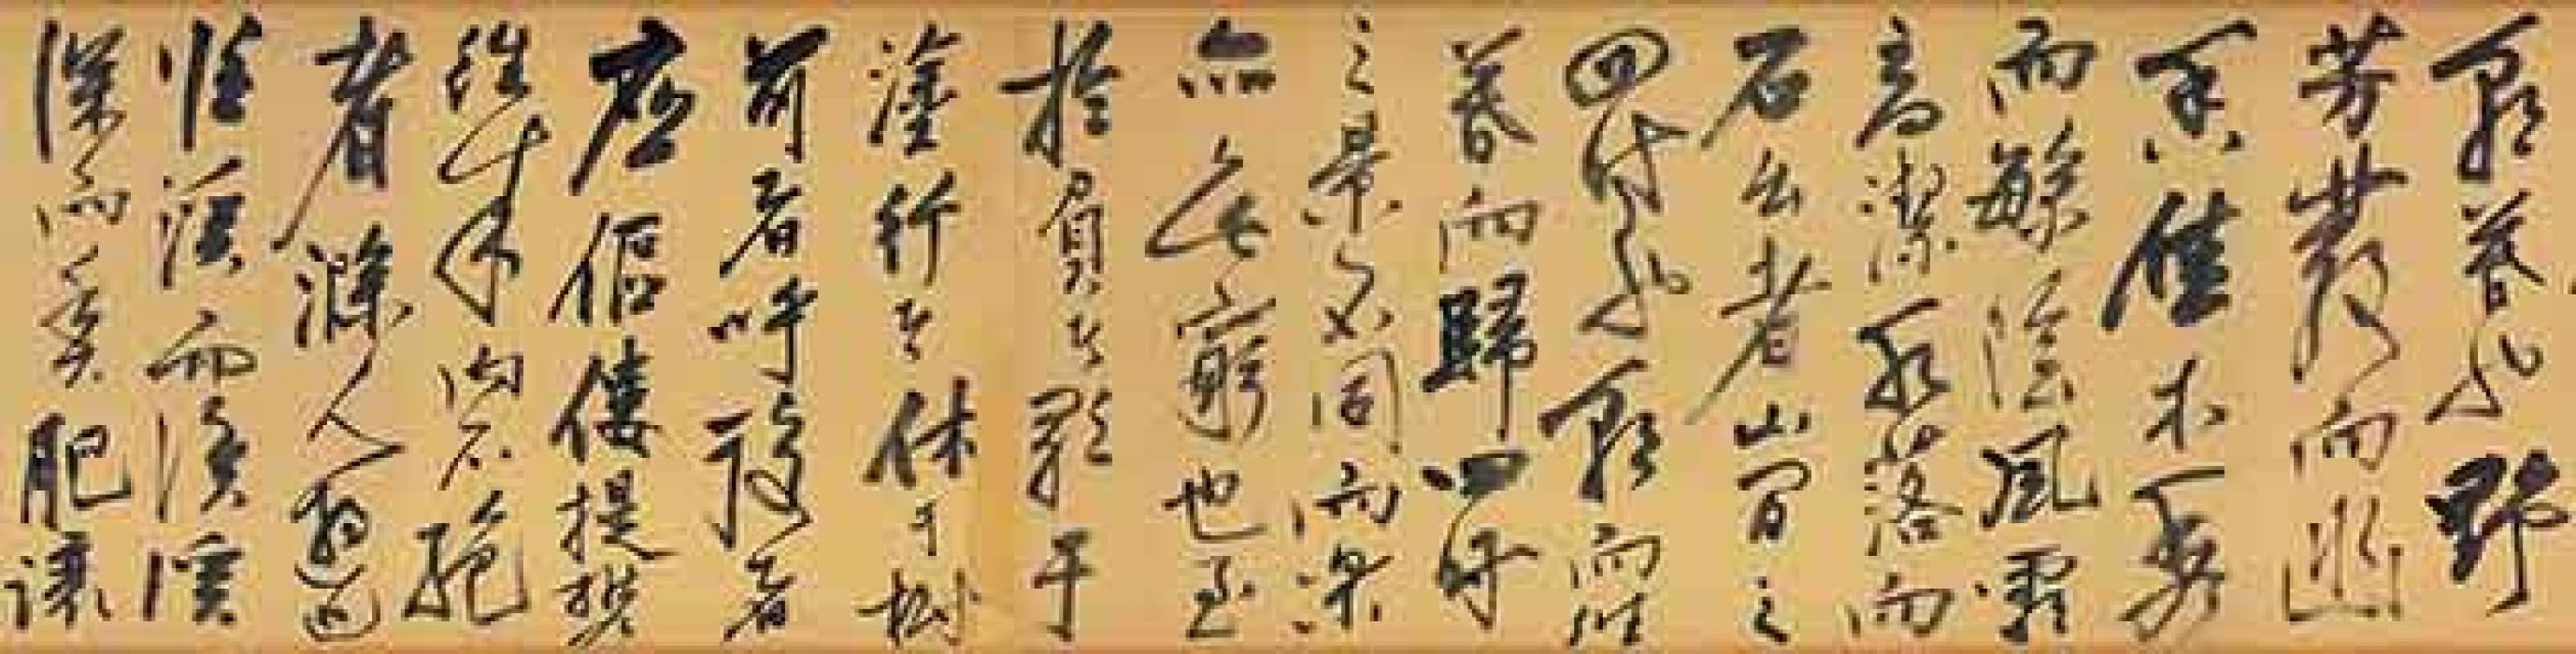 朝暮也野
芳發而幽
香佳木秀
而繁陰風霜
高潔水落而
石出者山間之
四時也朝而往
暮而歸四時
之景不同而樂
亦無窮也至
於負者歌于
塗行者休于樹
前者呼後者
應傴僂提攜
往來而不絕
者滁人遊
臨溪而漁溪
深而魚肥釀